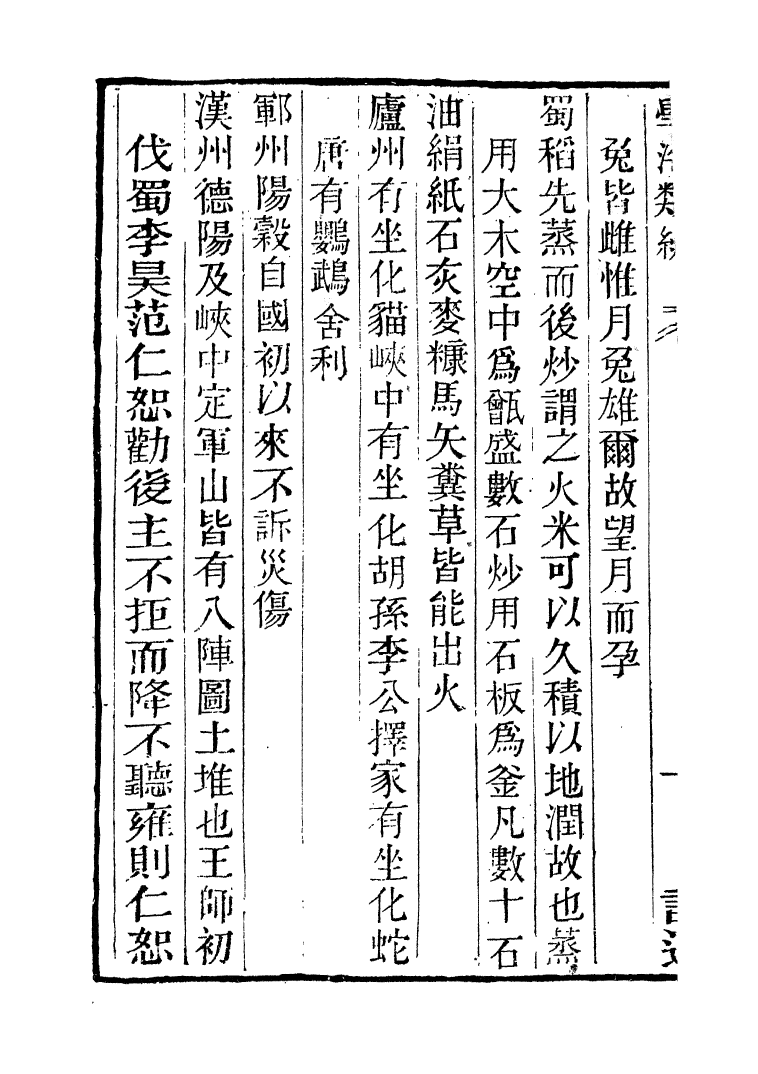 兔皆雌惟月兔雄爾故望月而孕
蜀稻先蒸而後炒謂之火米可以久積以地潤故也蒸
用大木空中爲甑盛數石炒用石板爲釜凡數十石
油絹紙石灰麥糠馬矢糞草皆能出火
廬州有坐化貓峽中有坐化胡孫李公擇家有坐化蛇
唐有鸚鵡舍利
鄆州陽穀自國初以來不訴災傷
漢州德陽及峽中定軍山皆有八陣圖土堆也王師初
伐蜀李昊范仁恕勸後主不拒而降不聽雍則仁恕